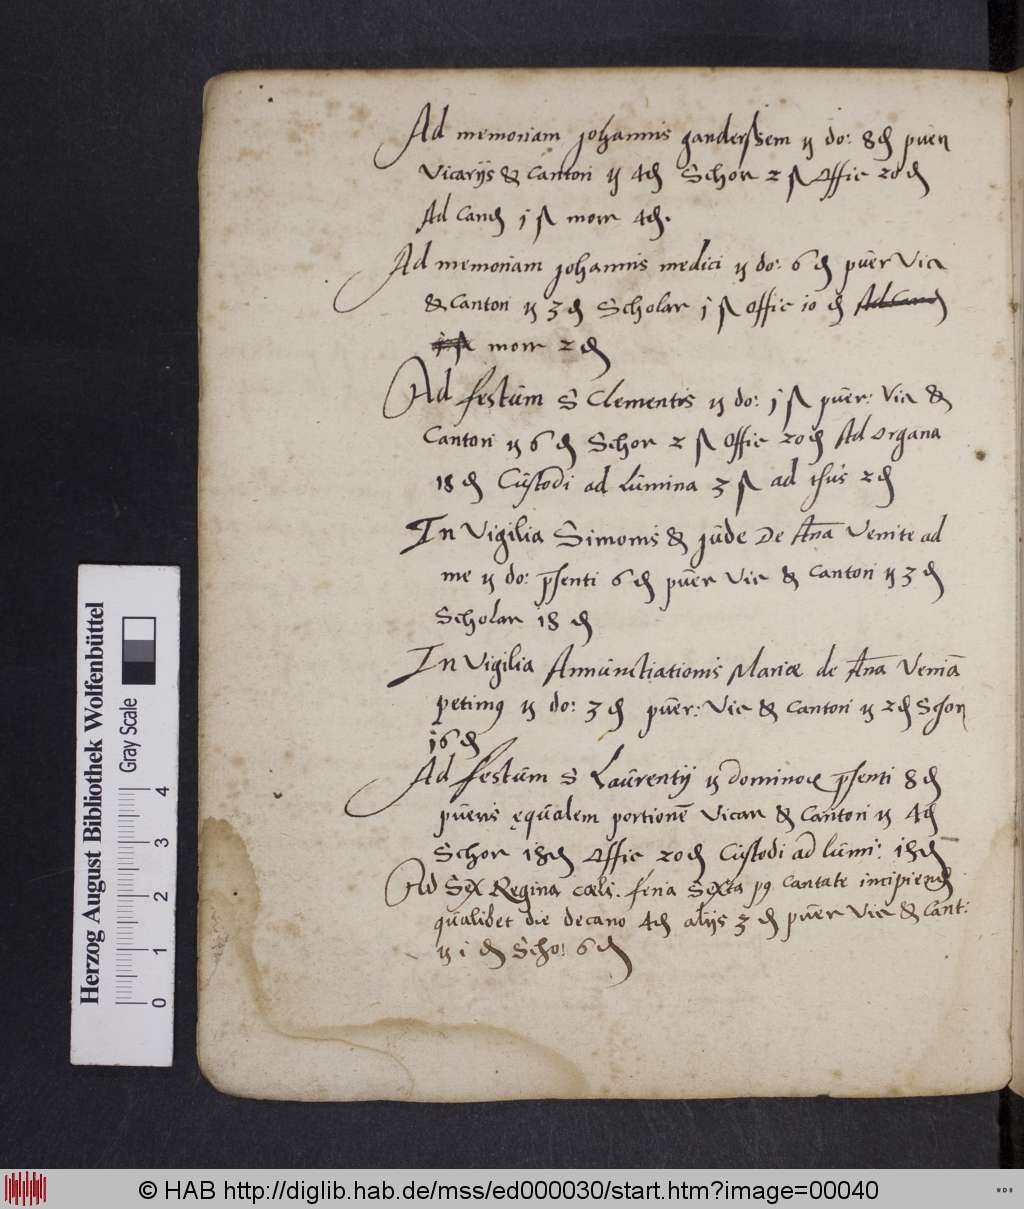 Ad memoriam johannis ganderssem ij do: 8 ₰ pueri
Vicarijs & Cantori ij 4 ₰ Schor 2 ß Offic 20 ₰
Ad Cand 1 ß morr 4 ₰.
Ad memoriam johannis medici ij do: 6 ₰ puer Vic
& Cantori ij 3 ₰ Scholar 1 ß Offic 10 ₰ Ad Cand
1 ß morr 2 ₰
Ad festum S Clementis ij do: 1 ß puer: Vic &
Cantori ij 6 ₰ Schor 2 ß Offic 20 ₰ Ad Organa
18 ₰ Custodi ad Lumina 3 ß ad 2 ₰
In Vigilia Simonis & jude De Ana Venite ad
me ij do: psenti 6 ₰ puer Vic & Cantori ij 3 ₰
Scholar 18 ₰
In Vigilia Annunctiationis Mariæ de Ana Veniā
petimꝯ ij do: 3 ₰ puer: Vic & Cantori ij 2 ₰ Schor
16 ₰
Ad festum S Laurentij ij dominoꝝ psenti 8 ₰
pueris ęqualem portionē Vicar & Cantori ij 4 ₰
Schor 18 ₰ Offic 20 ₰ Custodi ad lumi: 18 ₰
Ad Sex Regina cæli feria Sexta pꝯ Cantate incipiend
qualibet die decano 4 ₰ alijs 3 ₰ puer Vic & Cant:
ij 1 ₰ Scho: 6 ₰
Herzog August Bibliothek Wolfenbüttel
Gray Scale
0 1 2 3 4
© HAB http://diglib.hab.de/mss/ed000030/start.htm?image=00040